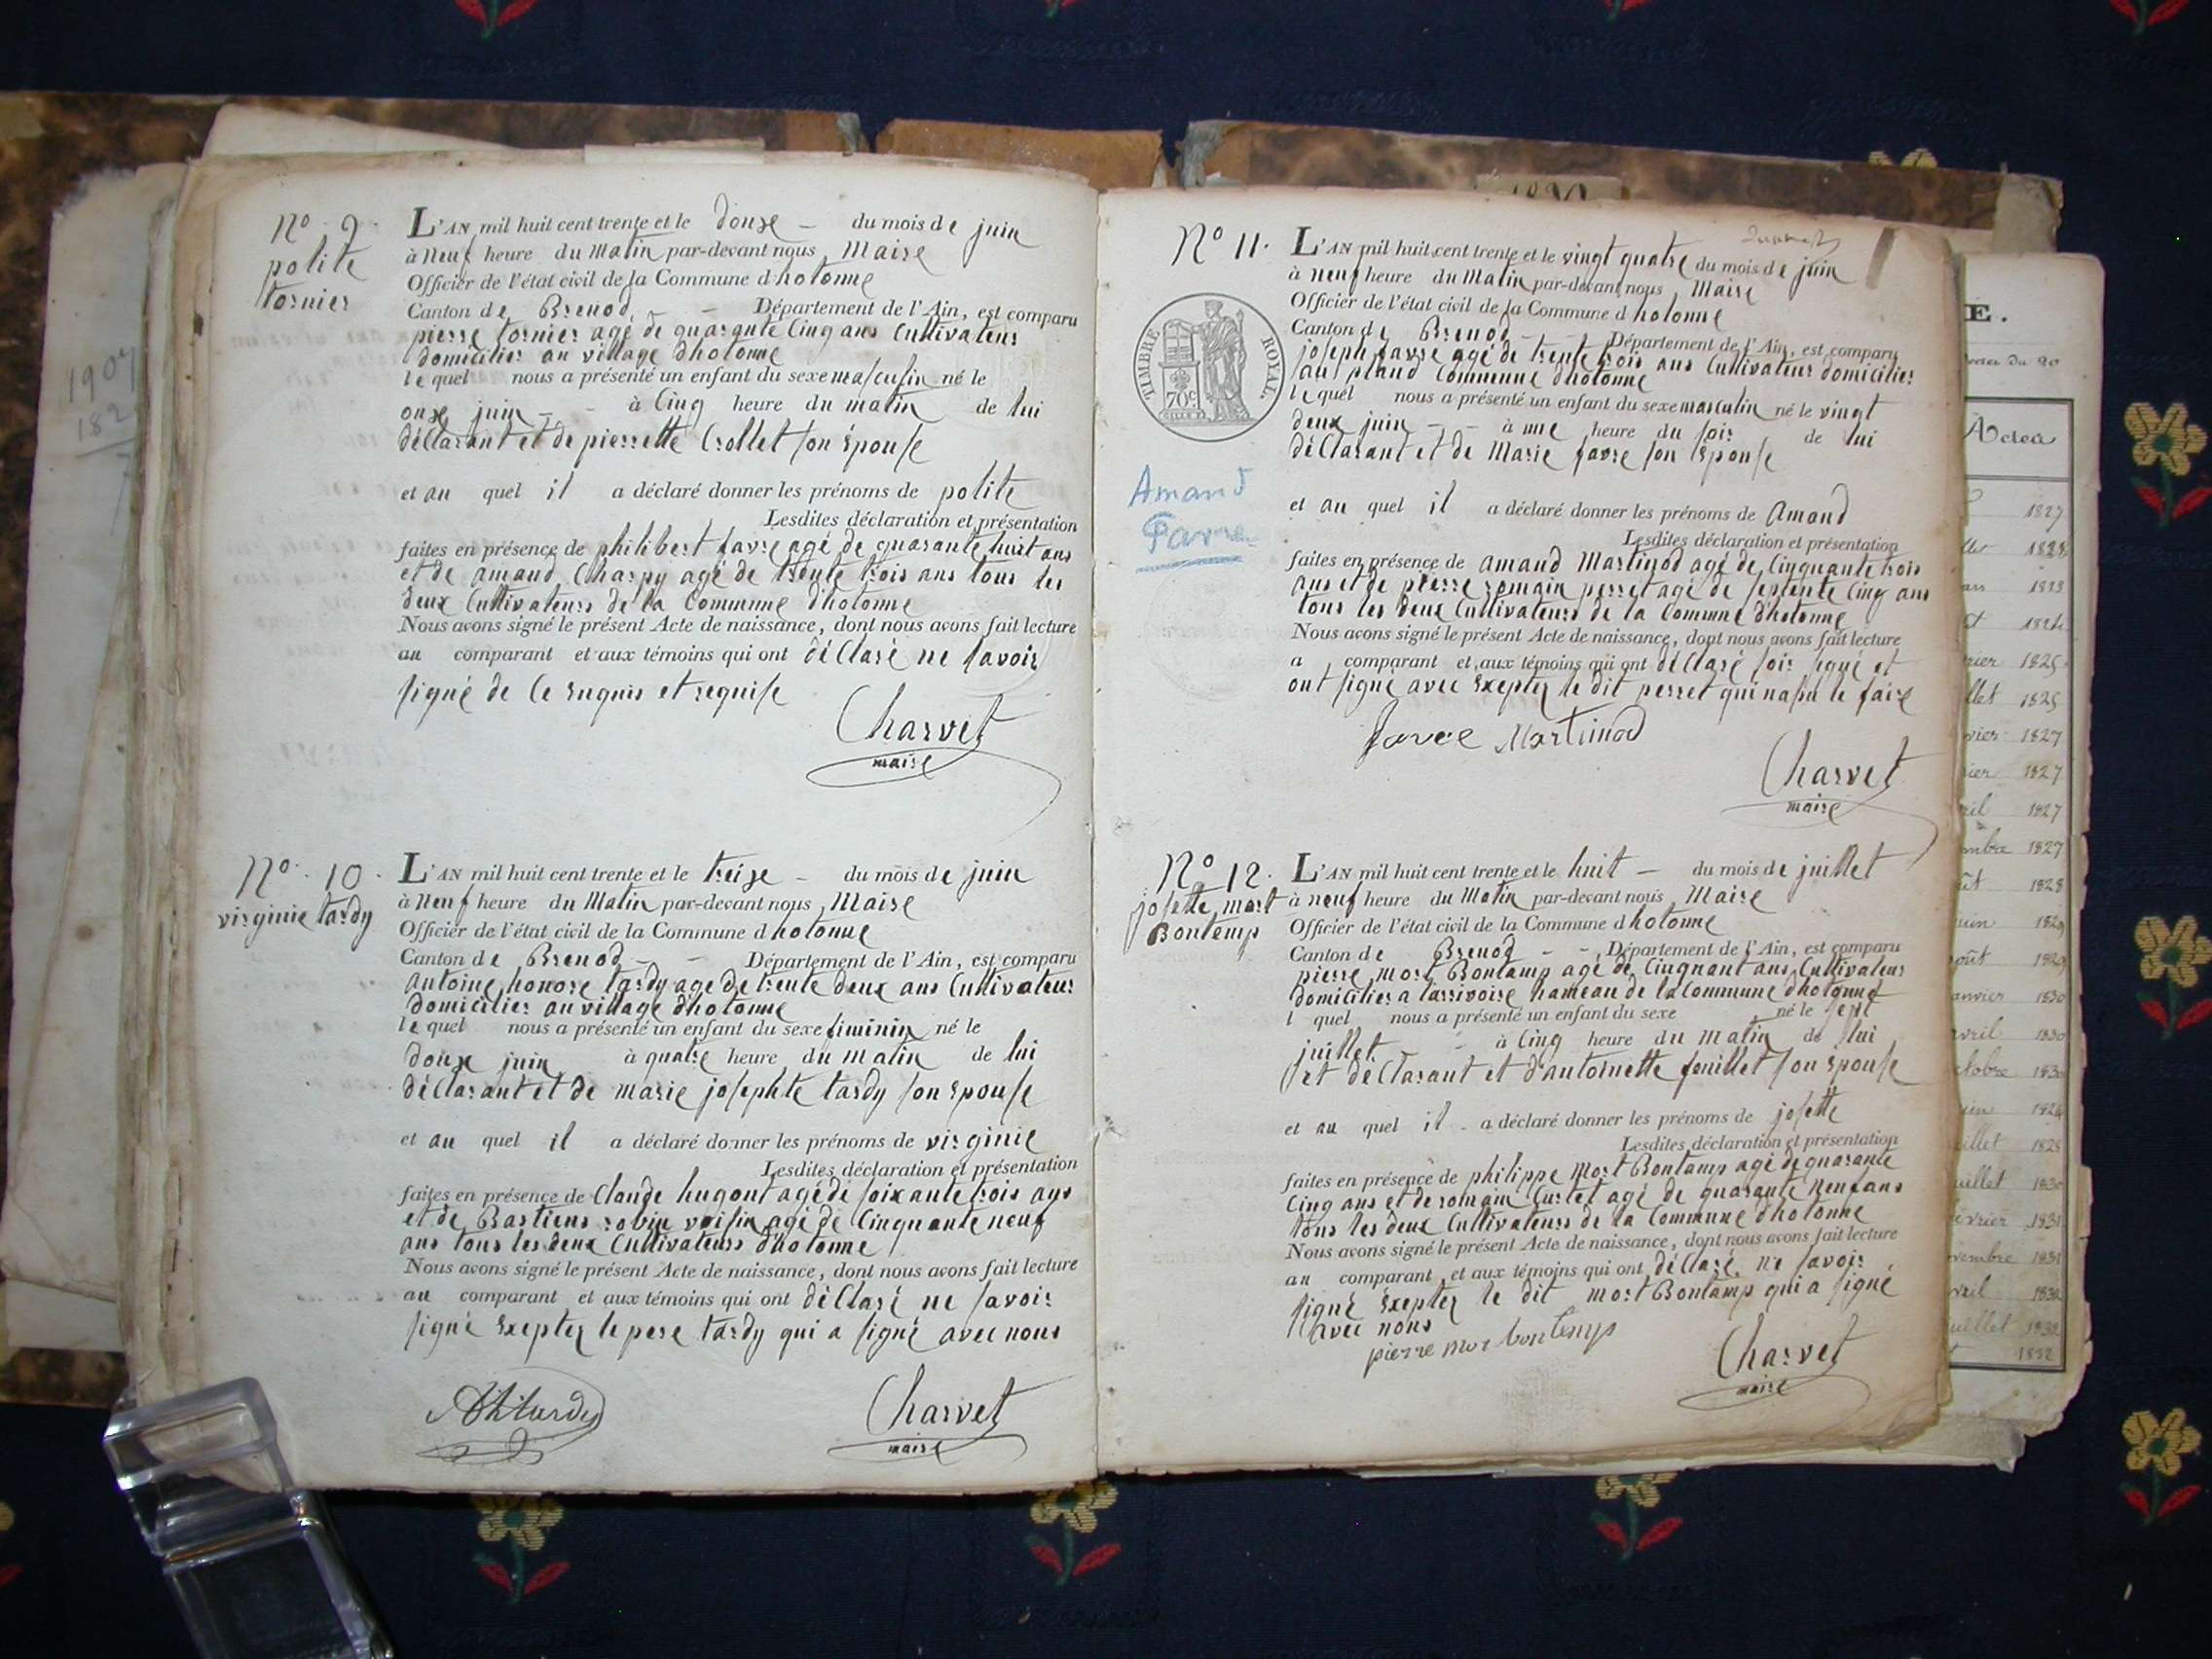 1907
182
No. 9.
polite
tornier
L'AN mil huit cent trente et le douze – du mois de juin
à neuf heure du matin par-devant nous Maire
Officier de l'état civil de la Commune d hotonne
Canton de Brenod – Département de l'Ain, est comparu
pierre tornier agé de quarante Cinq ans Cultivateur
domicilier au village d'hotonne
le quel nous a présenté un enfant du sexe masculin né le
onze juin – – à Cinq heure du matin de lui
déClarant et de pierrette Crollet son épouse
et au quel il a déclaré donner les prénoms de polite
Lesdites déclaration et présentation
faites en présence de philibert favre agé de quarante huit ans
et de amand Charpy agé de trente trois ans tous les
deux Cultivateurs de la Commune d'hotonne
Nous avons signé le présent Acte de naissance, dont nous avons fait lecture
au comparant et aux témoins qui ont déClaré ne savoir
signé de Ce enquis et requise
Charvet
maire
No. 10.
virginie tardy
L'AN mil huit cent trente et le treize – du mois de juin
à neuf heure du Matin par-devant nous Maire
Officier de l'état civil de la Commune d hotonne
Canton de Brenod – – Département de l'Ain, est comparu
antoine honore tardy age de trente deux ans Cultivateur
domicilier au village d'hotonne
le quel nous a présenté un enfant du sexe fiminin né le
douze juin à quatre heure du matin de lui
déClarant et de marie josephte tardy son epouse
et au quel il a déclaré donner les prénoms de virginie
Lesdites déclaration et présentation
faites en présence de Claude hugont agé de soixante trois ans
et de Bastiens robin voisin agé de Cinquante neuf
ans tous les deux Cultivateurs d'hotonne
Nous avons signé le présent Acte de naissance, dont nous avons fait lecture
au comparant et aux témoins qui ont déClaré ne savoir
signé Exepter le pere tardy qui a signé avec nous
AhTardy
Charvet
maire
No 11.
TIMBRE ROYAL
70c
Amand
Favre
L'AN mil huit cent trente et le vingt quatre du mois de juin
à neuf heure du Matin par-devant nous Maire
Officier de l'état civil de la Commune d hotonne
Canton de Brenod – Département de l'Ain, est comparu
joseph favre agé de trente trois ans Cultivateur domicilier
au pland Commune d'hotonne
le quel nous a présenté un enfant du sexe masculin né le vingt
deux juin – – à une heure du soir de lui
déClarant et de Marie favre son épouse
et au quel il a déclaré donner les prénoms de Amand
Lesdites déclaration et présentation
faites en présence de amand Martinod agé de Cinquante trois
ans et de pierre romain perret agé de septente Cinq ans
tous les deux Cultivateurs de la Commune d'hotonne
Nous avons signé le présent Acte de naissance, dont nous avons fait lecture
a comparant et aux témoins qui ont déClaré soir signé et
ont signé avec Exepter le dit perret qui na su le faire
favre Martinod
Charvet
maire
No 12.
josette mort
Bontemp
L'AN mil huit cent trente et le huit – du mois de juillet
à neuf heure du Matin par-devant nous Maire
Officier de l'état civil de la Commune d hotonne
Canton de Brenod – – Département de l'Ain, est comparu
pierre mort Bontamp agé de Cinquant ans Cultivateur
domicilier a l'arrivoire hameau de la Commune d'hotonne
l quel nous a présenté un enfant du sexe né le sept
juillet – à Cinq heure du matin de lui
et déClarant et d'antoinette fouillet son épouse
et au quel il a déclaré donner les prénoms de josette
Lesdites déclaration et présentation
faites en présence de philippe Mort Bontamp agé de quarante
Cinq ans et de romain Curtet agé de quarante neuf ans
tous les deux Cultivateurs de la Commune d'hotonne
Nous avons signé le présent Acte de naissance, dont nous avons fait lecture
au comparant et aux témoins qui ont déClaré ne savoir
signé éxepter le dit mort Bontamp qui a signé
avec nous
pierre mor bontemps
Charvet
maire
E.
du 20
Actes
1827
1828
1823
1824
1825
1825
1827
1827
1827
1827
1828
1829
1829
1830
1830
1830
1824
1828
1830
1831
1831
1832
1832
1832